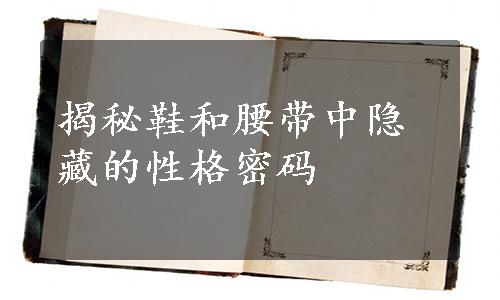 揭秘鞋和腰带中隐
藏的性格密码